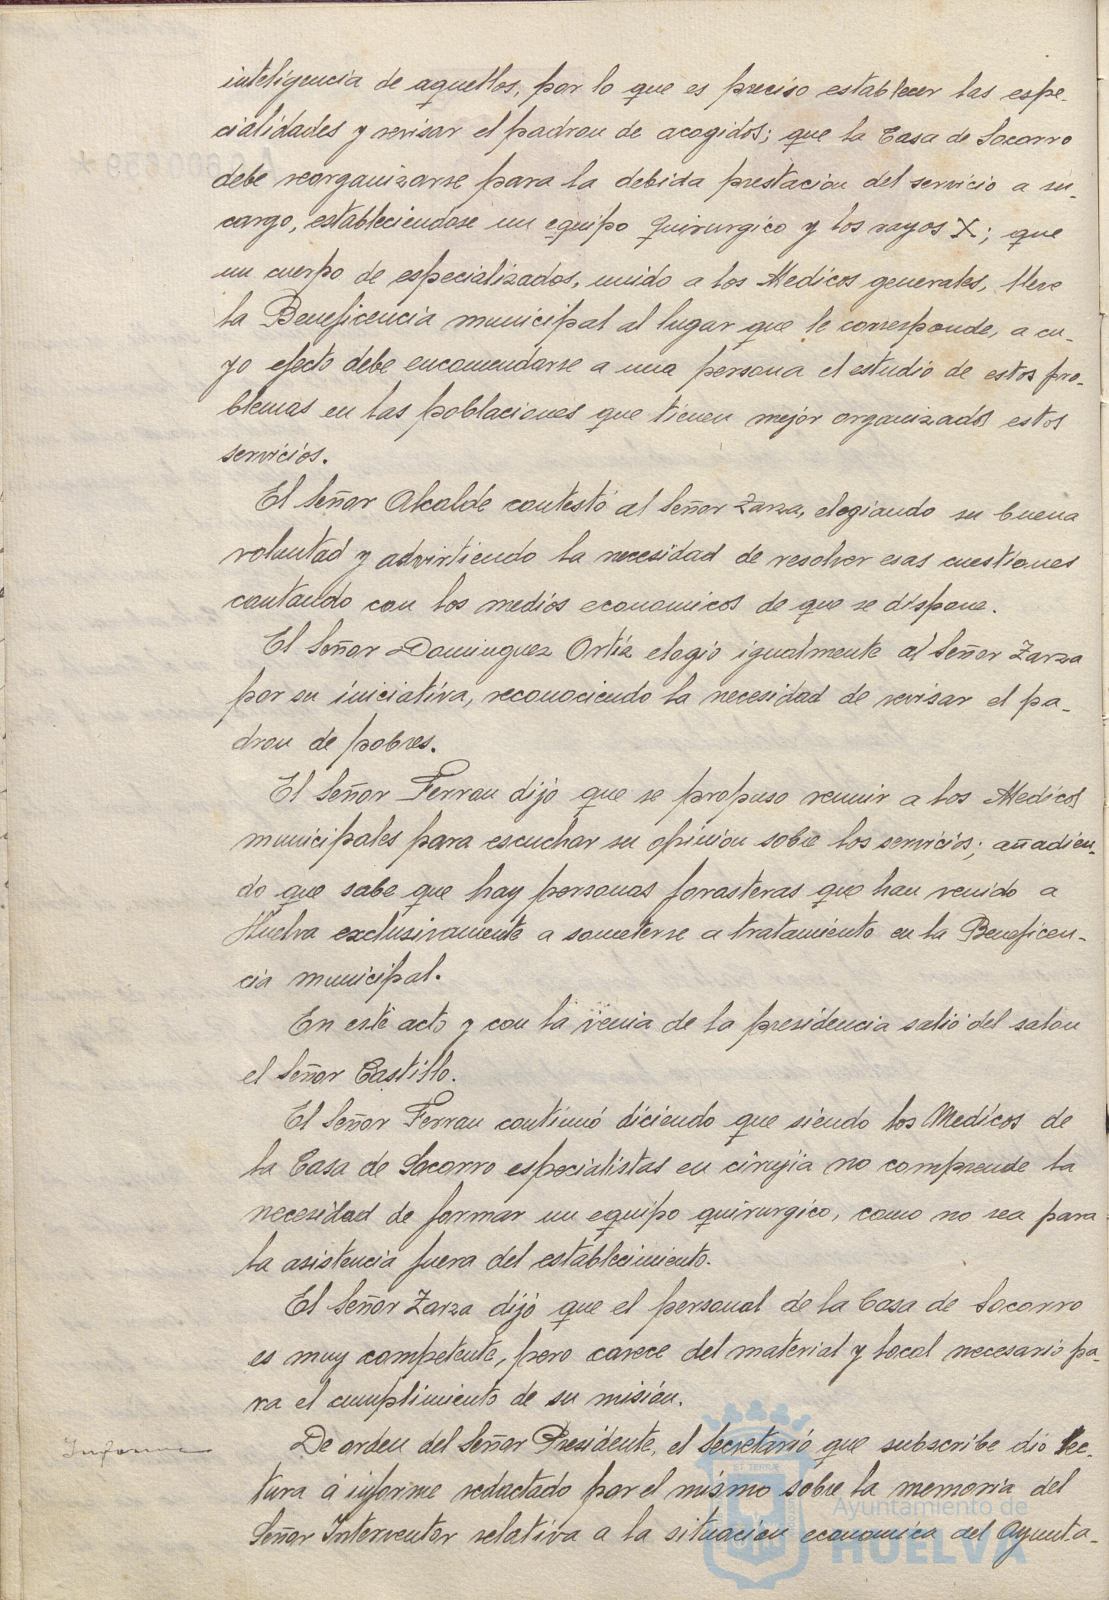 inteligencia de aquellos, por lo que es preciso establecer las espe-
cialidades y revisar el padron de acogidos; que la Casa de Socorro
debe reorganizarse para la debida prestacion del servicio a su
cargo, estableciendose un equipo quirurgico y los rayos X; que
un cuerpo de especializados, unido a los Medicos generales, lleve
la Beneficencia municipal al lugar que le corresponde, a cu-
yo efecto debe encomendarse a una persona el estudio de estos pro-
blemas en las poblaciones que tienen mejor organizados estos
servicios.
El Señor Alcalde contestó al Señor Zarza, elogiando su buena
voluntad y advirtiendo la necesidad de resolver esas cuestiones
contando con los medios economicos de que se dispone.
El Señor Dominguez Ortiz elogio igualmente al Señor Zarza
por su iniciativa, reconociendo la necesidad de revisar el pa-
dron de pobres.
El Señor Ferran dijo que se propuso reunir a los Medicos
municipales para escuchar su opinion sobre los servicios; añadien-
do que sabe que hay personas forasteras que han venido a
Huelva exclusivamente a someterse a tratamiento en la Beneficen-
cia municipal.
En este acto y con la venia de la presidencia salió del salon
el Señor Castillo.
El Señor Ferran continuó diciendo que siendo los Medicos de
la Casa de Socorro especialistas en cirujia no comprende la
necesidad de formar un equipo quirurgico, como no sea para
la asistencia fuera del establecimiento.
El Señor Zarza dijó que el personal de la Casa de Socorro
es muy competente, pero carece del material y local necesario pa-
ra el cumplimiento de su misión.
Informe
De orden del Señor Presidente, el Secretario que subscribe dio lec-
tura á informe redactado por el mismo sobre la memoria del
Señor Interventor relativa a la situacion economica del Ayunta-
Ayuntamiento de
HUELVA